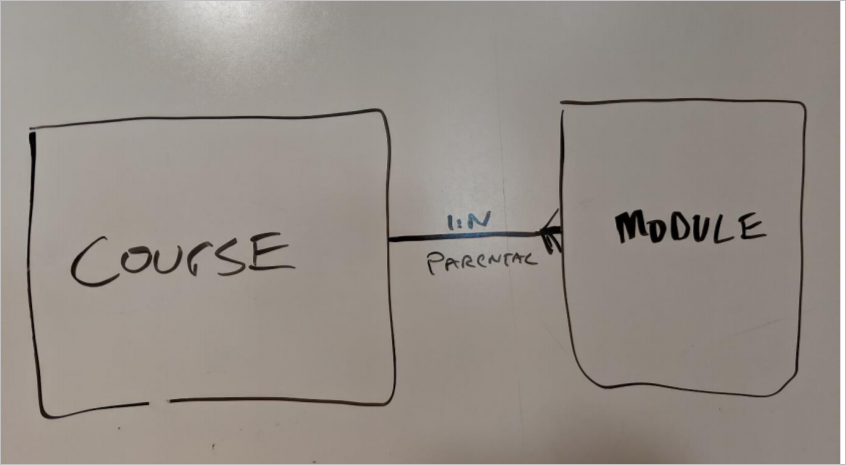 COURSE
1:N
PARENTAL
MODULE